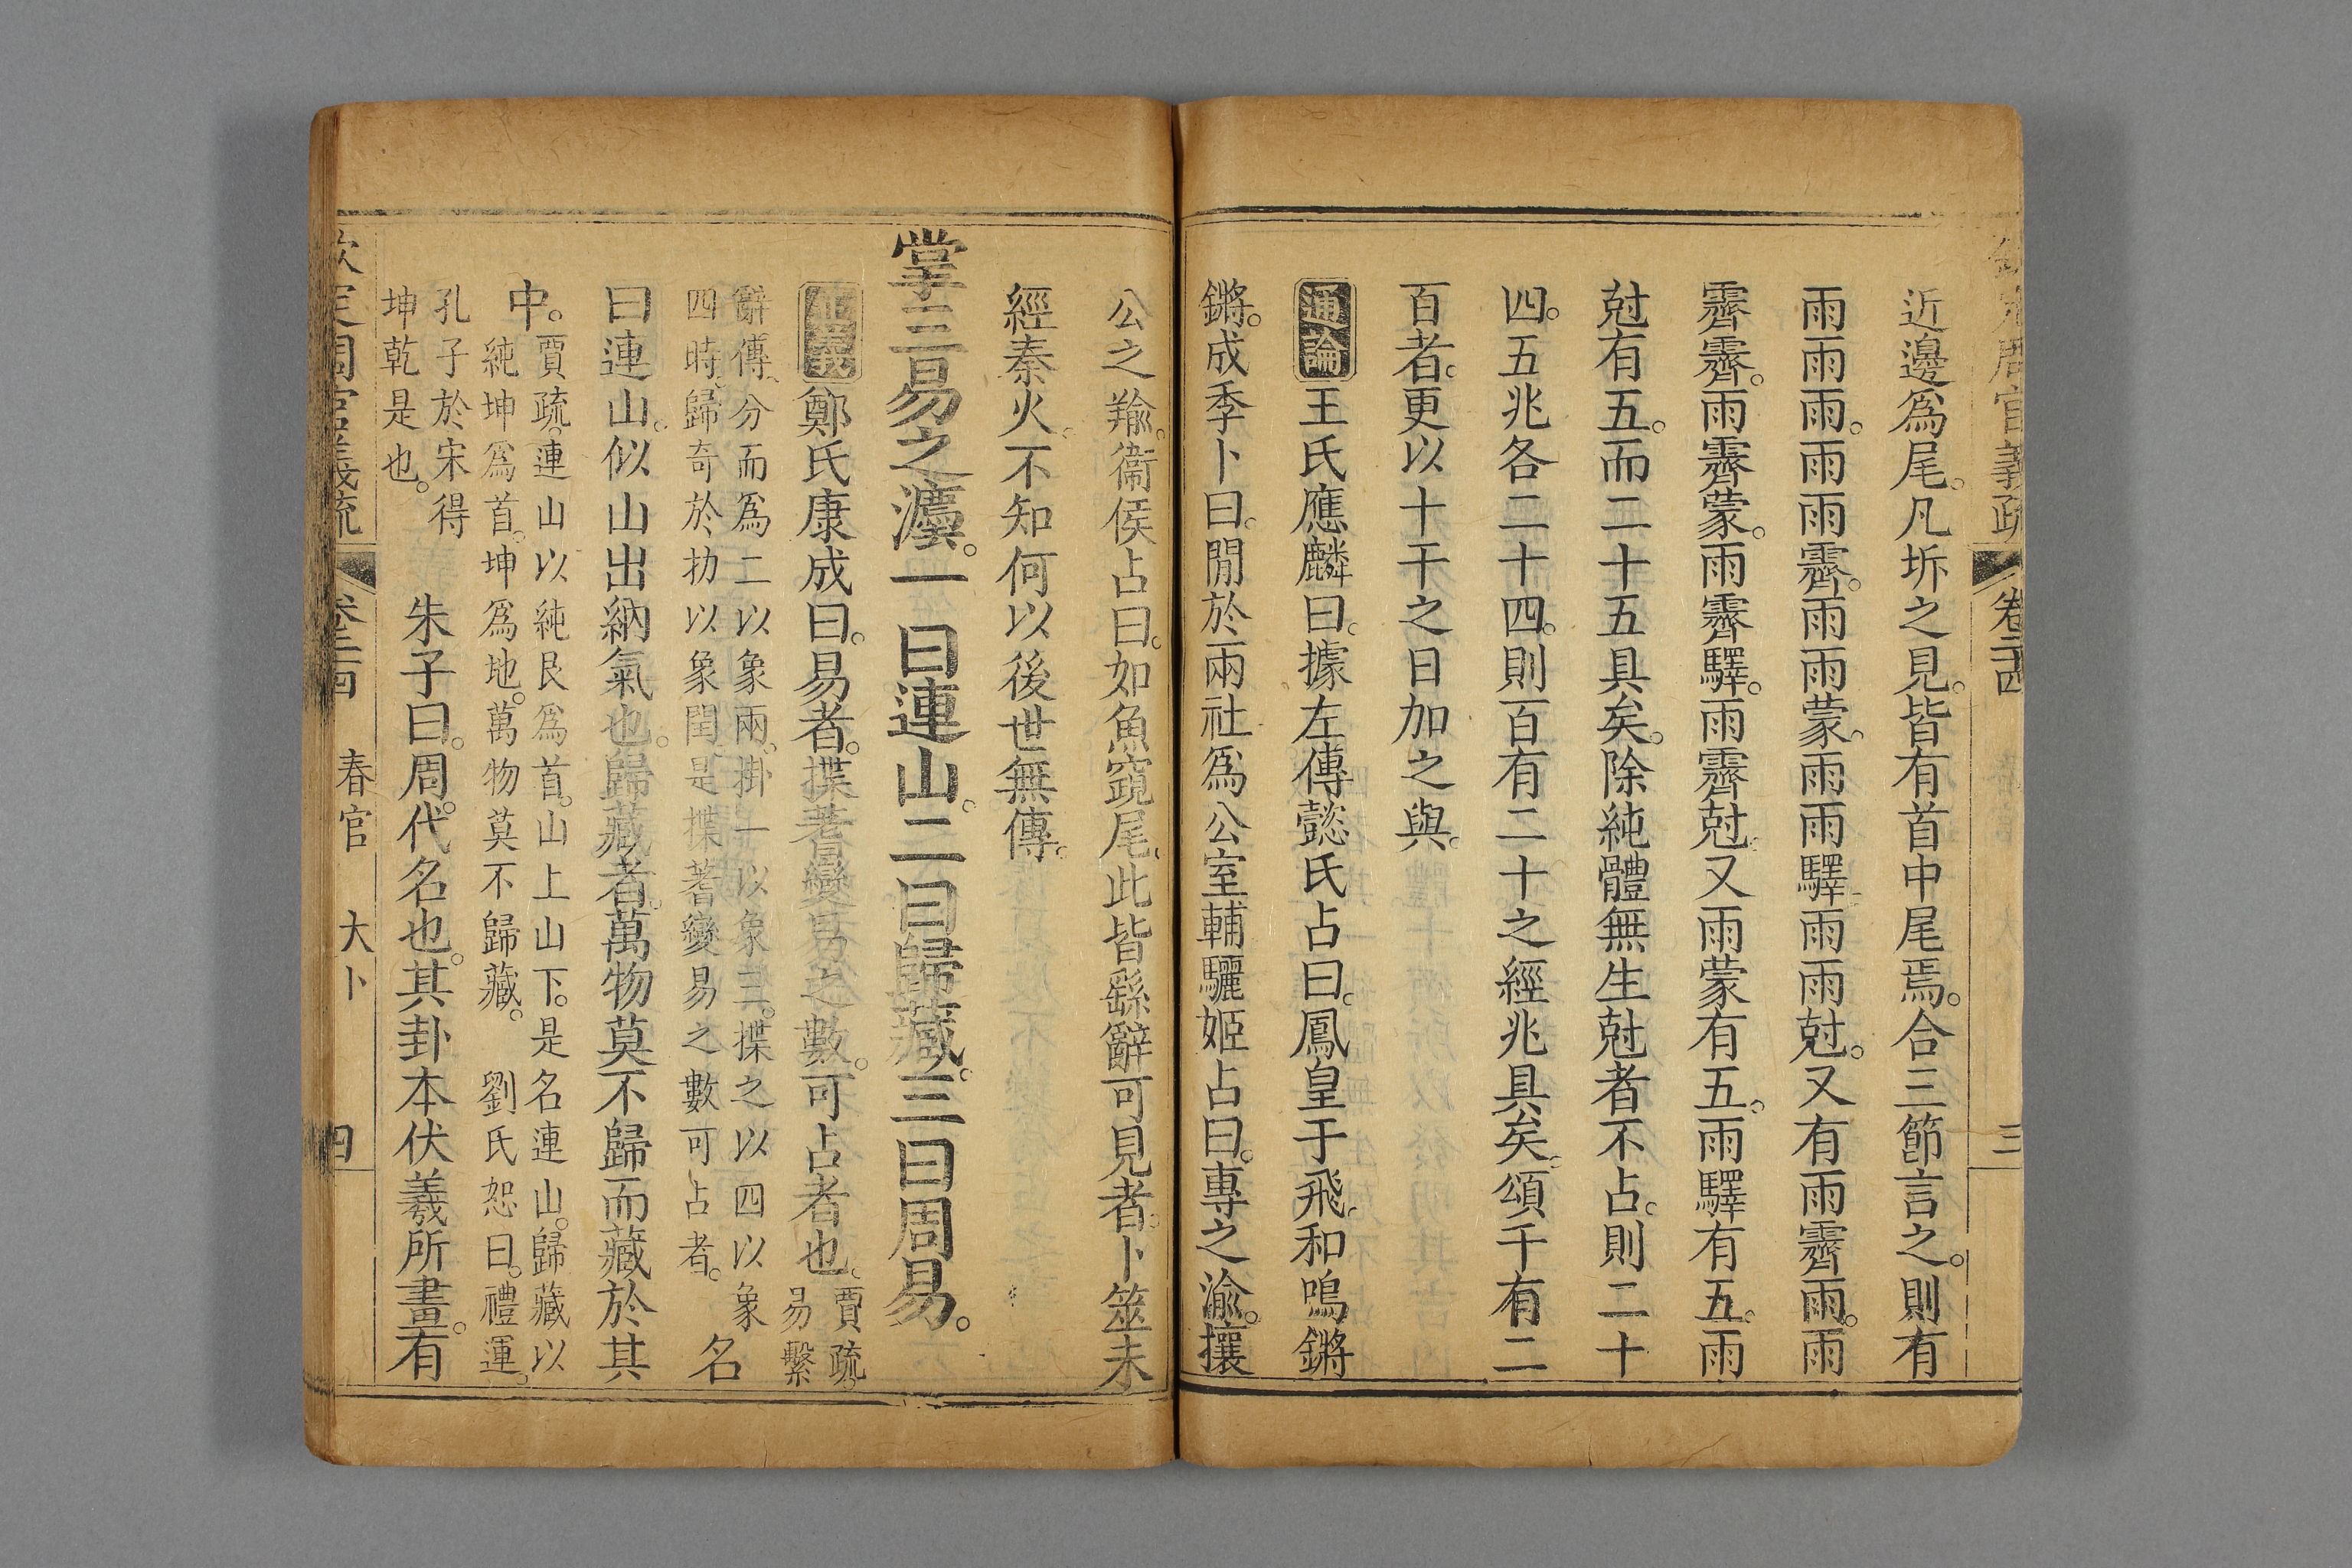 官義疏 卷二十四 三
近邊爲尾。凡坼之見。皆有首中尾焉。合三節言之。則有
雨雨雨。雨雨霽。雨雨蒙。雨雨驛。雨雨尅。又有雨霽雨。雨
霽霽。雨霽蒙。雨霽驛。雨霽尅。又雨蒙有五。雨驛有五。雨
尅有五。而二十五具矣。除純體無生尅者不占。則二十
四。五兆各二十四。則百有二十之經兆具矣。頌千有二
百者。更以十干之日加之與。
通論 王氏應麟曰。據左傳懿氏占曰。鳳皇于飛。和鳴鏘
鏘。成季卜曰。閒於兩社爲公室輔驪姬占曰。專之渝。攘
公之羭。衞侯占曰。如魚竀尾。此皆繇辭可見者。卜筮未
經秦火。不知何以後世無傳。
掌三易之灋。一曰連山。二曰歸藏。三曰周易。
正義 鄭氏康成曰。易者。揲蓍變易之數。可占者也。賈疏。易繫
辭傳、分而爲二以象兩、掛一以象三。揲之以四以象
四時、歸奇於扐以象閏、是揲蓍變易之數可占者。名
曰連山。似山出納氣也。歸藏者。萬物莫不歸而藏於其
中。賈疏。連山以純艮爲首。山上山下。是名連山。歸藏以
純坤爲首。坤爲地。萬物莫不歸藏。 劉氏恕曰。禮運。
孔子於宋得
坤乾是也。 朱子曰。周。代名也。其卦本伏羲所畫。有
欽定周官義疏 卷二十四 春官 大卜 四